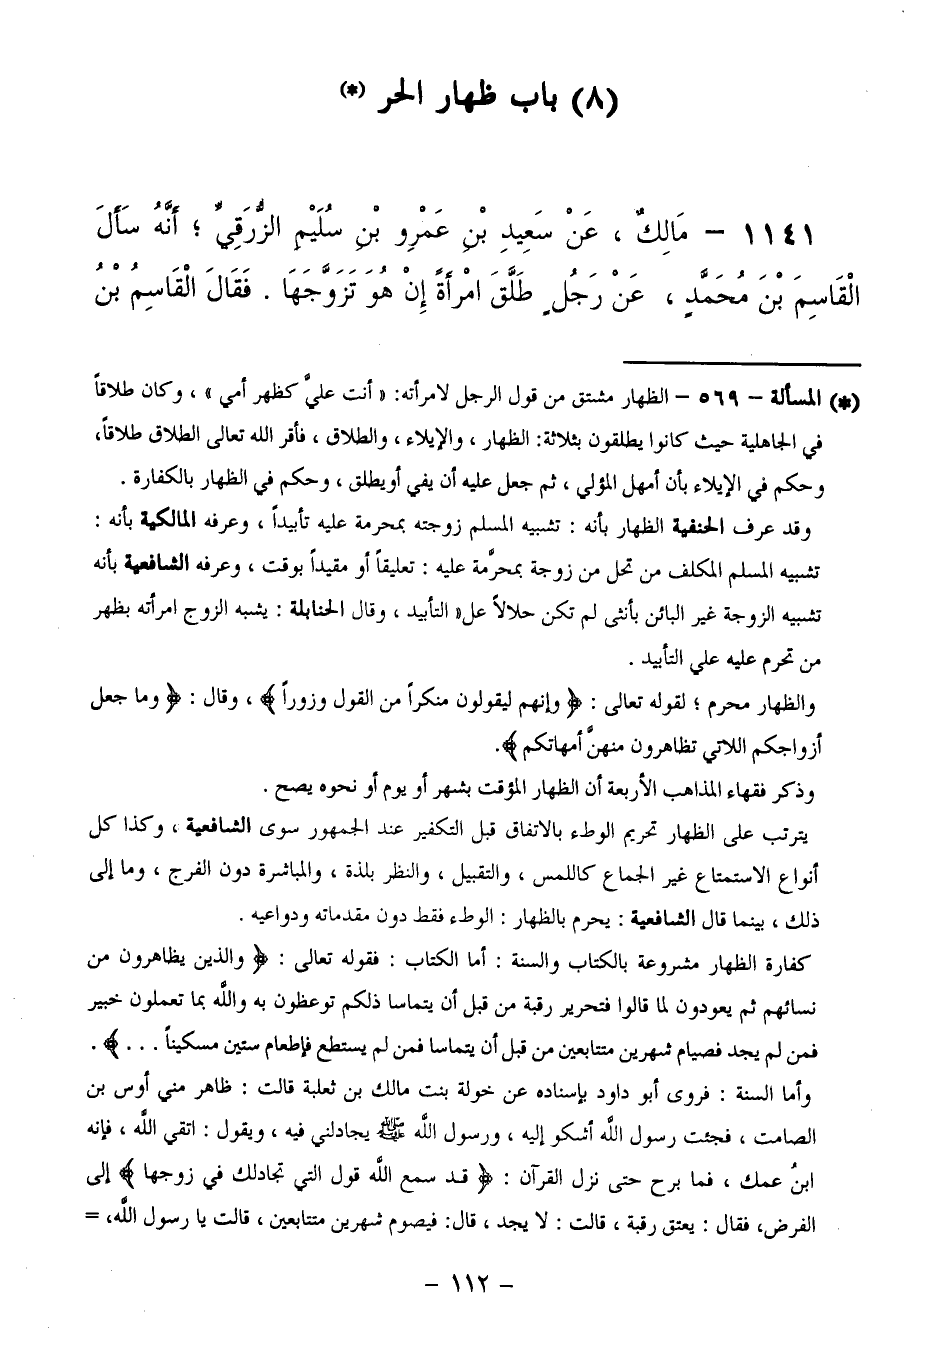 (٨) باب ظهار الحر (*)
١١٤١ - مَالِكٌ ، عَنْ سَعِيدِ بْنِ عَمْرِو بْنِ سُلَيْمٍ الزُّرَقِيِّ ؛ أَنَّهُ سَأَلَ
الْقَاسِمَ بْنَ مُحَمَّدٍ ، عَنْ رَجُلٍ طَلَّقَ امْرَأَةً إِنْ هُوَ تَزَوَّجَهَا . فَقَالَ الْقَاسِمُ بْنُ
(*) المسألة - ٥٦٩ - الظهار مشتق من قول الرجل لامرأته: « أنت عليَّ كظهر أمي » ، وكان طلاقاً
في الجاهلية حيث كانوا يطلقون بثلاثة: الظهار ، والإيلاء ، والطلاق ، فأقر الله تعالى الطلاق طلاقاً،
وحكم في الإيلاء بأن أمهل المؤلي ، ثم جعل عليه أن يفي أويطلق ، وحكم في الظهار بالكفارة .
وقد عرف الحنفية الظهار بأنه : تشبيه المسلم زوجته بمحرمة عليه تأبيداً ، وعرفه المالكية بأنه :
تشبيه المسلم المكلف من تحل من زوجة بمحرَّمة عليه : تعليقاً أو مقيداً بوقت ، وعرفه الشافعية بأنه
تشبيه الزوجة غير البائن بأنثى لم تكن حلالاً عل« التأبيد ، وقال الحنابلة : يشبه الزوج امرأته بظهر
من تحرم عليه علي التأبيد .
والظهار محرم ؛ لقوله تعالى : ﴿ وإنهم ليقولون منكراً من القول وزوراً ﴾ ، وقال : ﴿ وما جعل
أزواجكم اللاتي تظاهرون منهنَّ أمهاتكم ﴾.
وذكر فقهاء المذاهب الأربعة أن الظهار المؤقت بشهر أو يوم أو نحوه يصح .
يترتب على الظهار تحريم الوطء بالاتفاق قبل التكفير عند الجمهور سوى الشافعية ، وكذا كل
أنواع الاستمتاع غير الجماع كاللمس ، والتقبيل ، والنظر بلذة ، والمباشرة دون الفرج ، وما إلى
ذلك ، بينما قال الشافعية : يحرم بالظهار : الوطء فقط دون مقدماته ودواعيه .
كفارة الظهار مشروعة بالكتاب والسنة : أما الكتاب : فقوله تعالى : ﴿ والذين يظاهرون من
نسائهم ثم يعودون لما قالوا فتحرير رقبة من قبل أن يتماسا ذلكم توعظون به والله بما تعملون خبير
فمن لم يجد فصيام شهرين متتابعين من قبل أن يتماسا فمن لم يستطع فإطعام ستين مسكيناً . . . ﴾ .
وأما السنة : فروى أبو داود بإسناده عن خولة بنت مالك بن ثعلبة قالت : ظاهر مني أوس بن
الصامت ، فجئت رسول الله أشكو إليه ، ورسول الله ﷺ يجادلني فيه ، ويقول : اتقي الله ، فإنه
ابنُ عمك ، فما برح حتى نزل القرآن : ﴿ قد سمع الله قول التي تجادلك في زوجها ﴾ إلى
الفرض، فقال : يعتق رقبة ، قالت : لا يجد ، قال: فيصوم شهرين متتابعين ، قالت يا رسول الله، =
- ١١٢ -